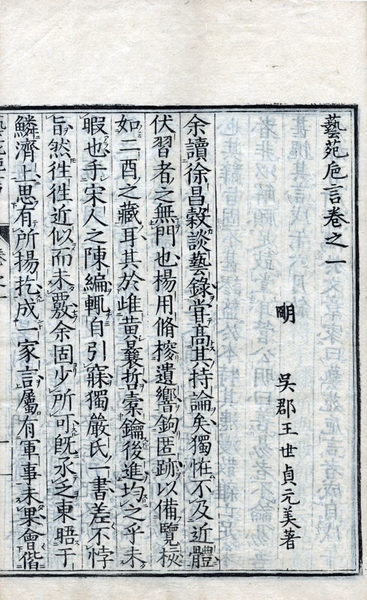 藝苑巵言卷之一
明　吳郡王世貞元美著
余讀徐昌穀談藝錄嘗髙其持論矣獨恠不及近體
伏習者之無門也揚用脩搜遺響鉤匿跡以備覽核
如二酉之藏耳其於雌黃曩哲橐鑰後進均之乎未
暇也手宋人之陳編輒自引寐獨嚴氏一書差不悖
旨然徃徃近似而未覈余固少所可旣承乏東晤于
鱗濟上思有所揚扢成一家言屬有軍事未果會偕